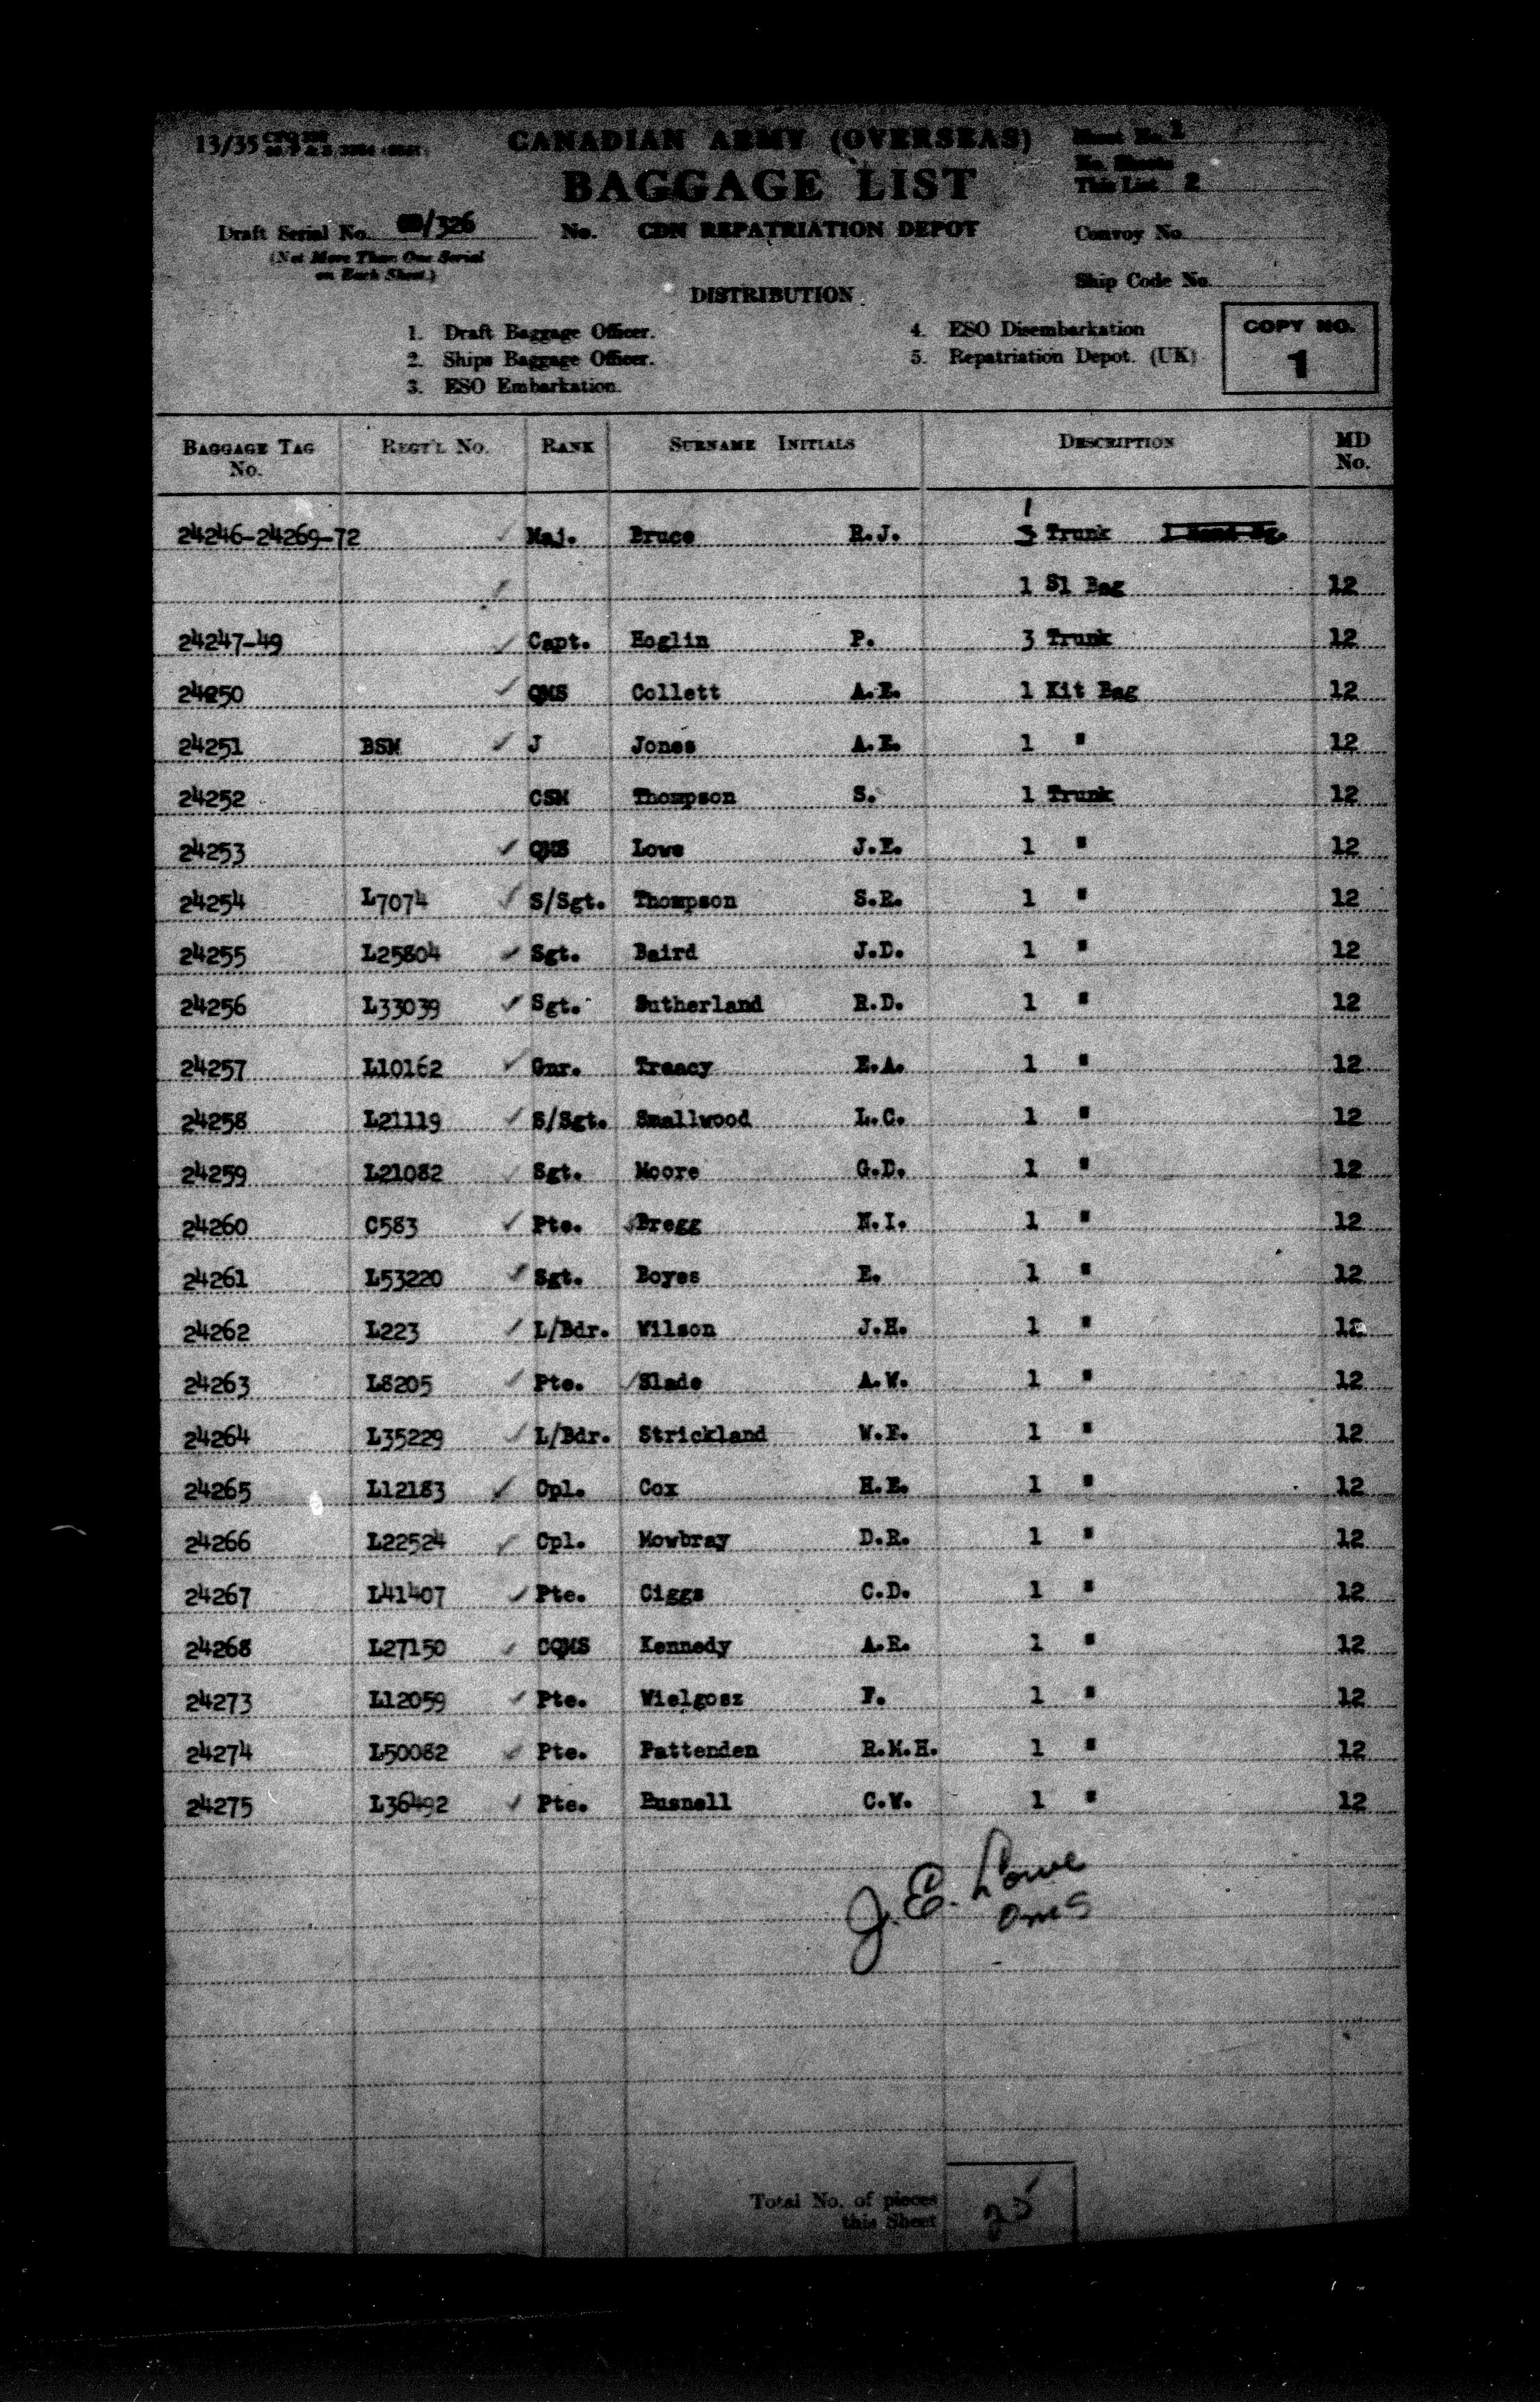 13/35
CANADIAN ARMY (OVERSEAS)
Sheet No. 1
BAGGAGE LIST
No. Sheets
This List 2
Draft Serial No. /326
No. CDN REPATRIATION DEPOT
Convoy No.
(Not More Than One Serial
on Each Sheet.)
Ship Code No.
DISTRIBUTION
1. Draft Baggage Officer.
4. ESO Disembarkation
2. Ships Baggage Officer.
5. Repatriation Depot. (UK)
3. ESO Embarkation.
COPY NO.
1
BAGGAGE TAG No. REGT'L No. RANK SURNAME INITIALS DESCRIPTION MD No.
24246-24269-72 Maj. Bruce R.J. 1 Trunk
1 Sl Bag 12
24247-49 Capt. Hoglin P. 3 Trunk 12
24250 QMS Collett A.E. 1 Kit Bag 12
24251 BSM J Jones A.E. 1 " 12
24252 CSM Thompson S. 1 Trunk 12
24253 QMS Lowe J.E. 1 " 12
24254 L7074 S/Sgt. Thompson S.R. 1 " 12
24255 L25804 Sgt. Baird J.D. 1 " 12
24256 L33039 Sgt. Sutherland R.D. 1 " 12
24257 L10162 Gnr. Treacy E.A. 1 " 12
24258 L21119 S/Sgt. Smallwood L.C. 1 " 12
24259 L21082 Sgt. Moore G.D. 1 " 12
24260 C583 Pte. Bregg N.I. 1 " 12
24261 L53220 Sgt. Boyes E. 1 " 12
24262 L223 L/Bdr. Wilson J.H. 1 " 12
24263 L8205 Pte. Slade A.W. 1 " 12
24264 L35229 L/Bdr. Strickland W.F. 1 " 12
24265 L12183 Cpl. Cox H.E. 1 " 12
24266 L22524 Cpl. Mowbray D.R. 1 " 12
24267 L41407 Pte. Ciggs C.D. 1 " 12
24268 L27150 CQMS Kennedy A.R. 1 " 12
24273 L12059 Pte. Wielgosz F. 1 " 12
24274 L50082 Pte. Pattenden R.M.H. 1 " 12
24275 L36492 Pte. Busnell C.W. 1 " 12
J. E. Lowe
QMS
Total No. of pieces
this Sheet
25